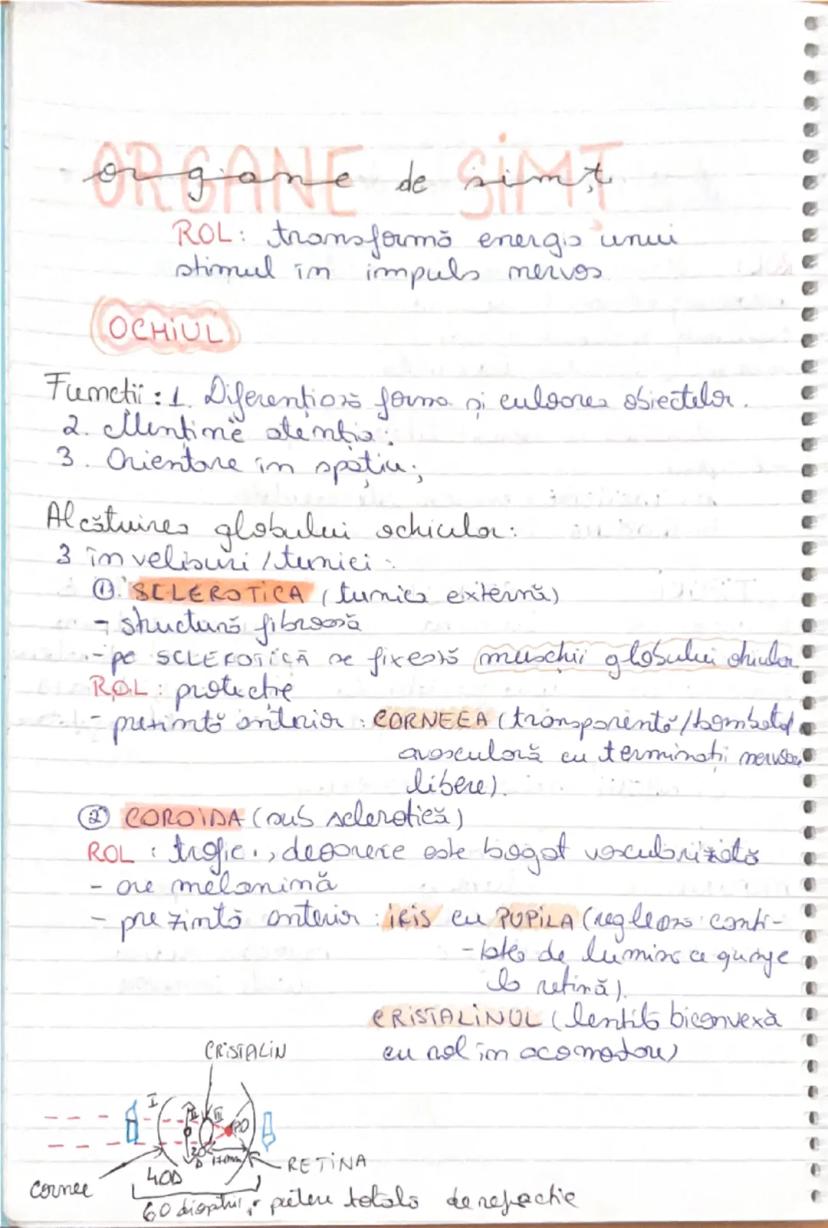 ORGANE de SIMȚ
organe de simț
ROL: transformă energia unui
stimul în impuls nervos
OCHIUL
Funcții: 1. Diferențiază forma și culoarea obiectelor.
2. Menține atenția.
3. Orientare în spațiu;
Alcătuirea globului ocular:
3 învelișuri/tunici:
① SCLEROTICA (tunica externă)
- structură fibroasă
- pe SCLEROTICĂ se fixează mușchii globului ocular
ROL: protecție
- prezintă anterior: CORNEEA (transparentă/bombată
avasculară cu terminații nervoase
libere).
② COROIDA (sub sclerotică)
ROL: trofic, deoarece este bogat vascularizată
- are melanină
- prezintă anterior: IRIS cu PUPILA (reglează canti-
-tatea de lumina ce ajunge
la retină).
CRISTALINUL (lentilă biconvexă
cu rol în acomodare)
CRISTALIN
I II III
20 D 17mm
RETINA
cornee
40D
60 dioptrii, putere totală de refracție